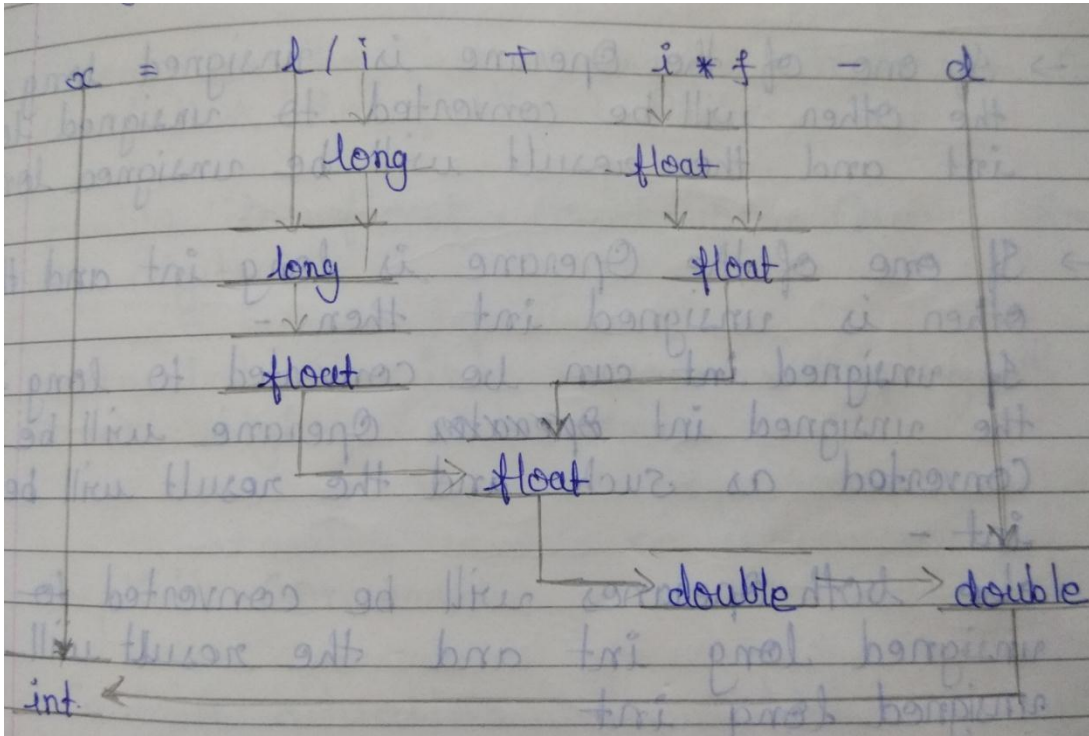 x = l / i + i * f - d
long float
long float
float
float
double double
int